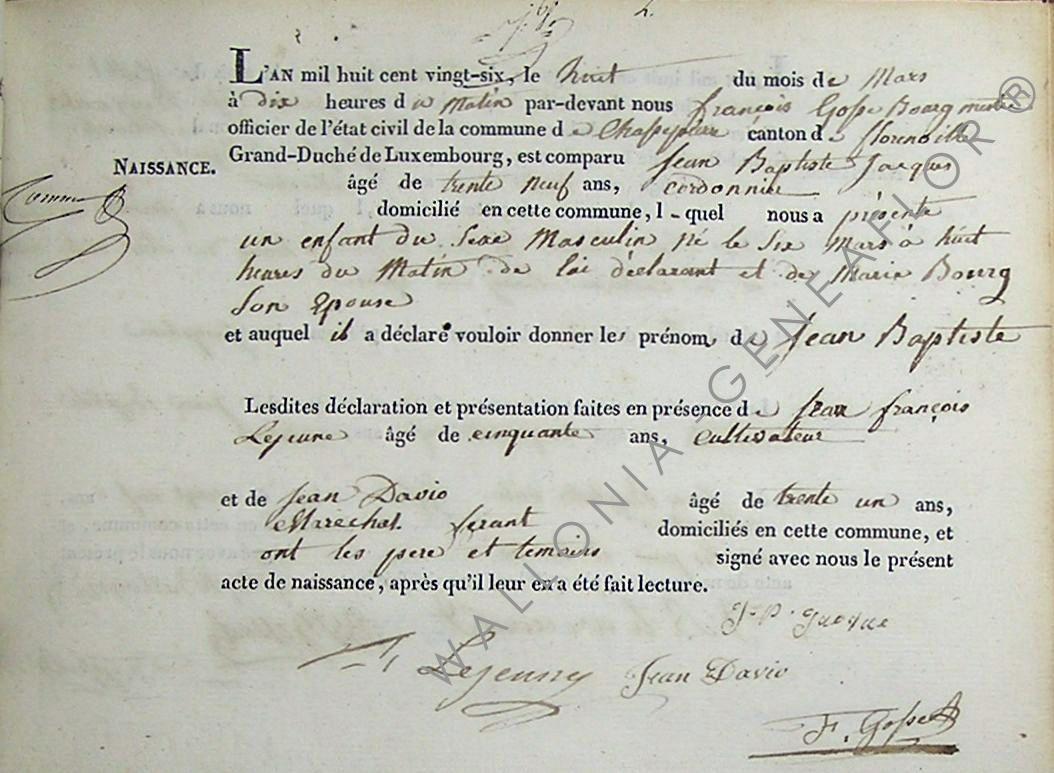 L'AN mil huit cent vingt-six, le huit du mois de Mars
à dix heures du Matin par-devant nous françois Gosse Bourgmestre
officier de l'état civil de la commune de Chassepierre canton de florenville
Grand-Duché de Luxembourg, est comparu Jean Baptiste Jacques
NAISSANCE.
âgé de trente neuf ans, cordonnier
domicilié en cette commune, l-quel nous a présenté
un enfant du Sexe Masculin né le Six Mars à huit
heures du Matin de lui déclarant et de Marie Bourg
Son Epouse
et auquel il a déclaré vouloir donner les prénoms de Jean Baptiste
Lesdites déclaration et présentation faites en présence de Jean françois
Lejeune âgé de cinquante ans, Cultivateur
et de Jean Davio âgé de trente un ans,
Marechal ferant domiciliés en cette commune, et
ont les pere et temoins signé avec nous le présent
acte de naissance, après qu'il leur en a été fait lecture.
Lejeune Jean Davio
F. Gosse
WALLONIA GENEAFLOR ®